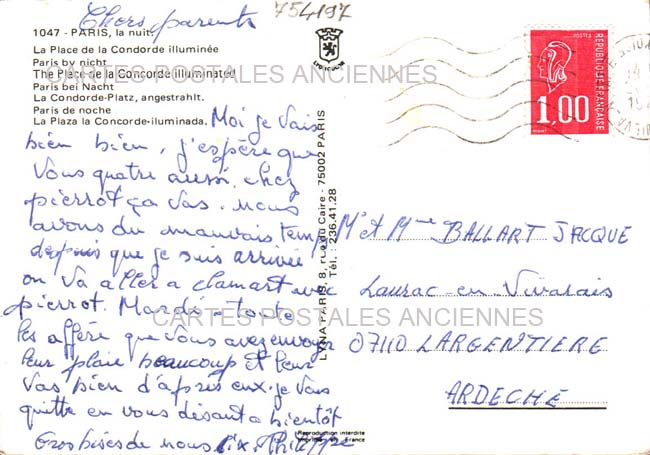 Chers parents
754197
1047 - PARIS, la nuit.
La Place de la Condorde illuminée
Paris by nicht
The Place de la Concorde illuminated
Paris bei Nacht
La Condorde-Platz, angestrahlt.
Paris de noche
La Plaza la Concorde-iluminada.
CARTES POSTALES ANCIENNES
Moi je vais
bien bien, j'espère que
vous quatre aussi. chez
pierrot ça vas. nous
avons du mauvais temps
depuis que je suis arrivée
on va aller a clamart avec
pierrot. Mardi - toute
les affère que vous avez envoyer
leur plaie beaucoup et leur
vas bien d'après eux. je vous
quitte en vous désant a bientôt
Gros bises de nous Philippe
LYNA PARIS, 8, rue du Caire - 75002 PARIS
Tél. : 236.41.28
Reproduction interdite
Imprimé en France
POSTES
REPUBLIQUE FRANÇAISE
1,00
Mr et Mme BALLART JACQUE
Laurac en Vivarais
07110 LARGENTIERE
ARDECHE
CARTES POSTALES ANCIENNES